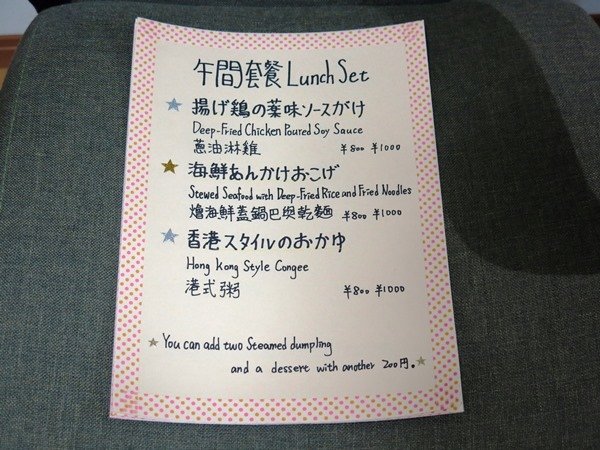 午間套餐 Lunch Set
揚げ鶏の薬味ソースがけ
Deep-Fried Chicken Poured Soy Sauce
蔥油淋雞 ¥800 ¥1000
海鮮あんかけおこげ
Stewed Seafood with Deep-Fried Rice and Fried Noodles
燴海鮮蓋鍋巴與乾麵 ¥800 ¥1000
香港スタイルのおかゆ
Hong Kong Style Congee
港式粥 ¥800 ¥1000
You can add two Steamed dumpling
and a dessert with another 200円。